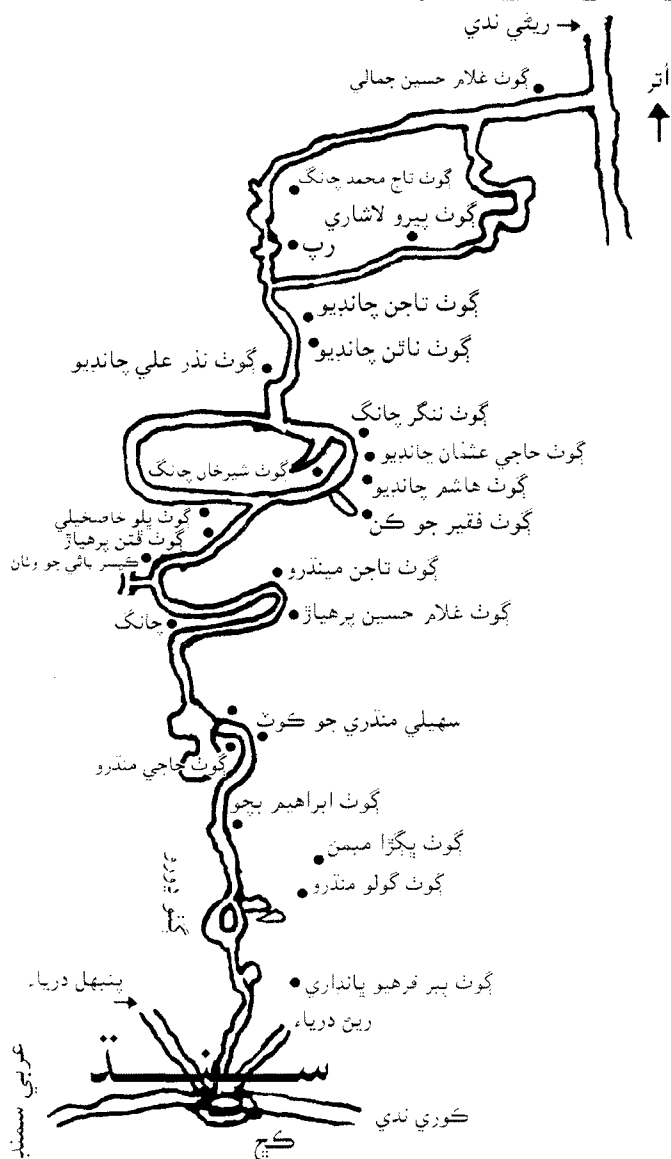 ريڻي ندي
اُتر
ڳوٺ غلام حسين جمالي
ڳوٺ تاج محمد چانگ
ڳوٺ پيرو لاشاري
رپ
ڳوٺ تاجن چانڊيو
ڳوٺ ناٿن چانڊيو
ڳوٺ نذر علي چانڊيو
ڳوٺ ننگر چانگ
ڳوٺ حاجي عثمان چانڊيو
ڳوٺ شيرخان چانگ
ڳوٺ هاشم چانڊيو
ڳوٺ فقير جو کن
ڳوٺ پلو خاصخيلي
ڳوٺ فتن پرهياڙ
ڪيسر ٻائي جو وٿاڻ
ڳوٺ تاجن مينڌرو
ڳوٺ غلام حسين پرهياڙ
چانگ
سهيلي منڌري جو ڪوٽ
ڳوٺ حاجي منڌرو
ڳوٺ ابراهيم ٻچو
ڳوٺ پڳڙا ميمن
ڳوٺ گولو منڌرو
ڳوٺ پير فرهيو ڀانڊاري
پنيهل درياء
ريڻ درياء
سنڌ
عربي سمنڊ
ڪوري ندي
ڪڇ